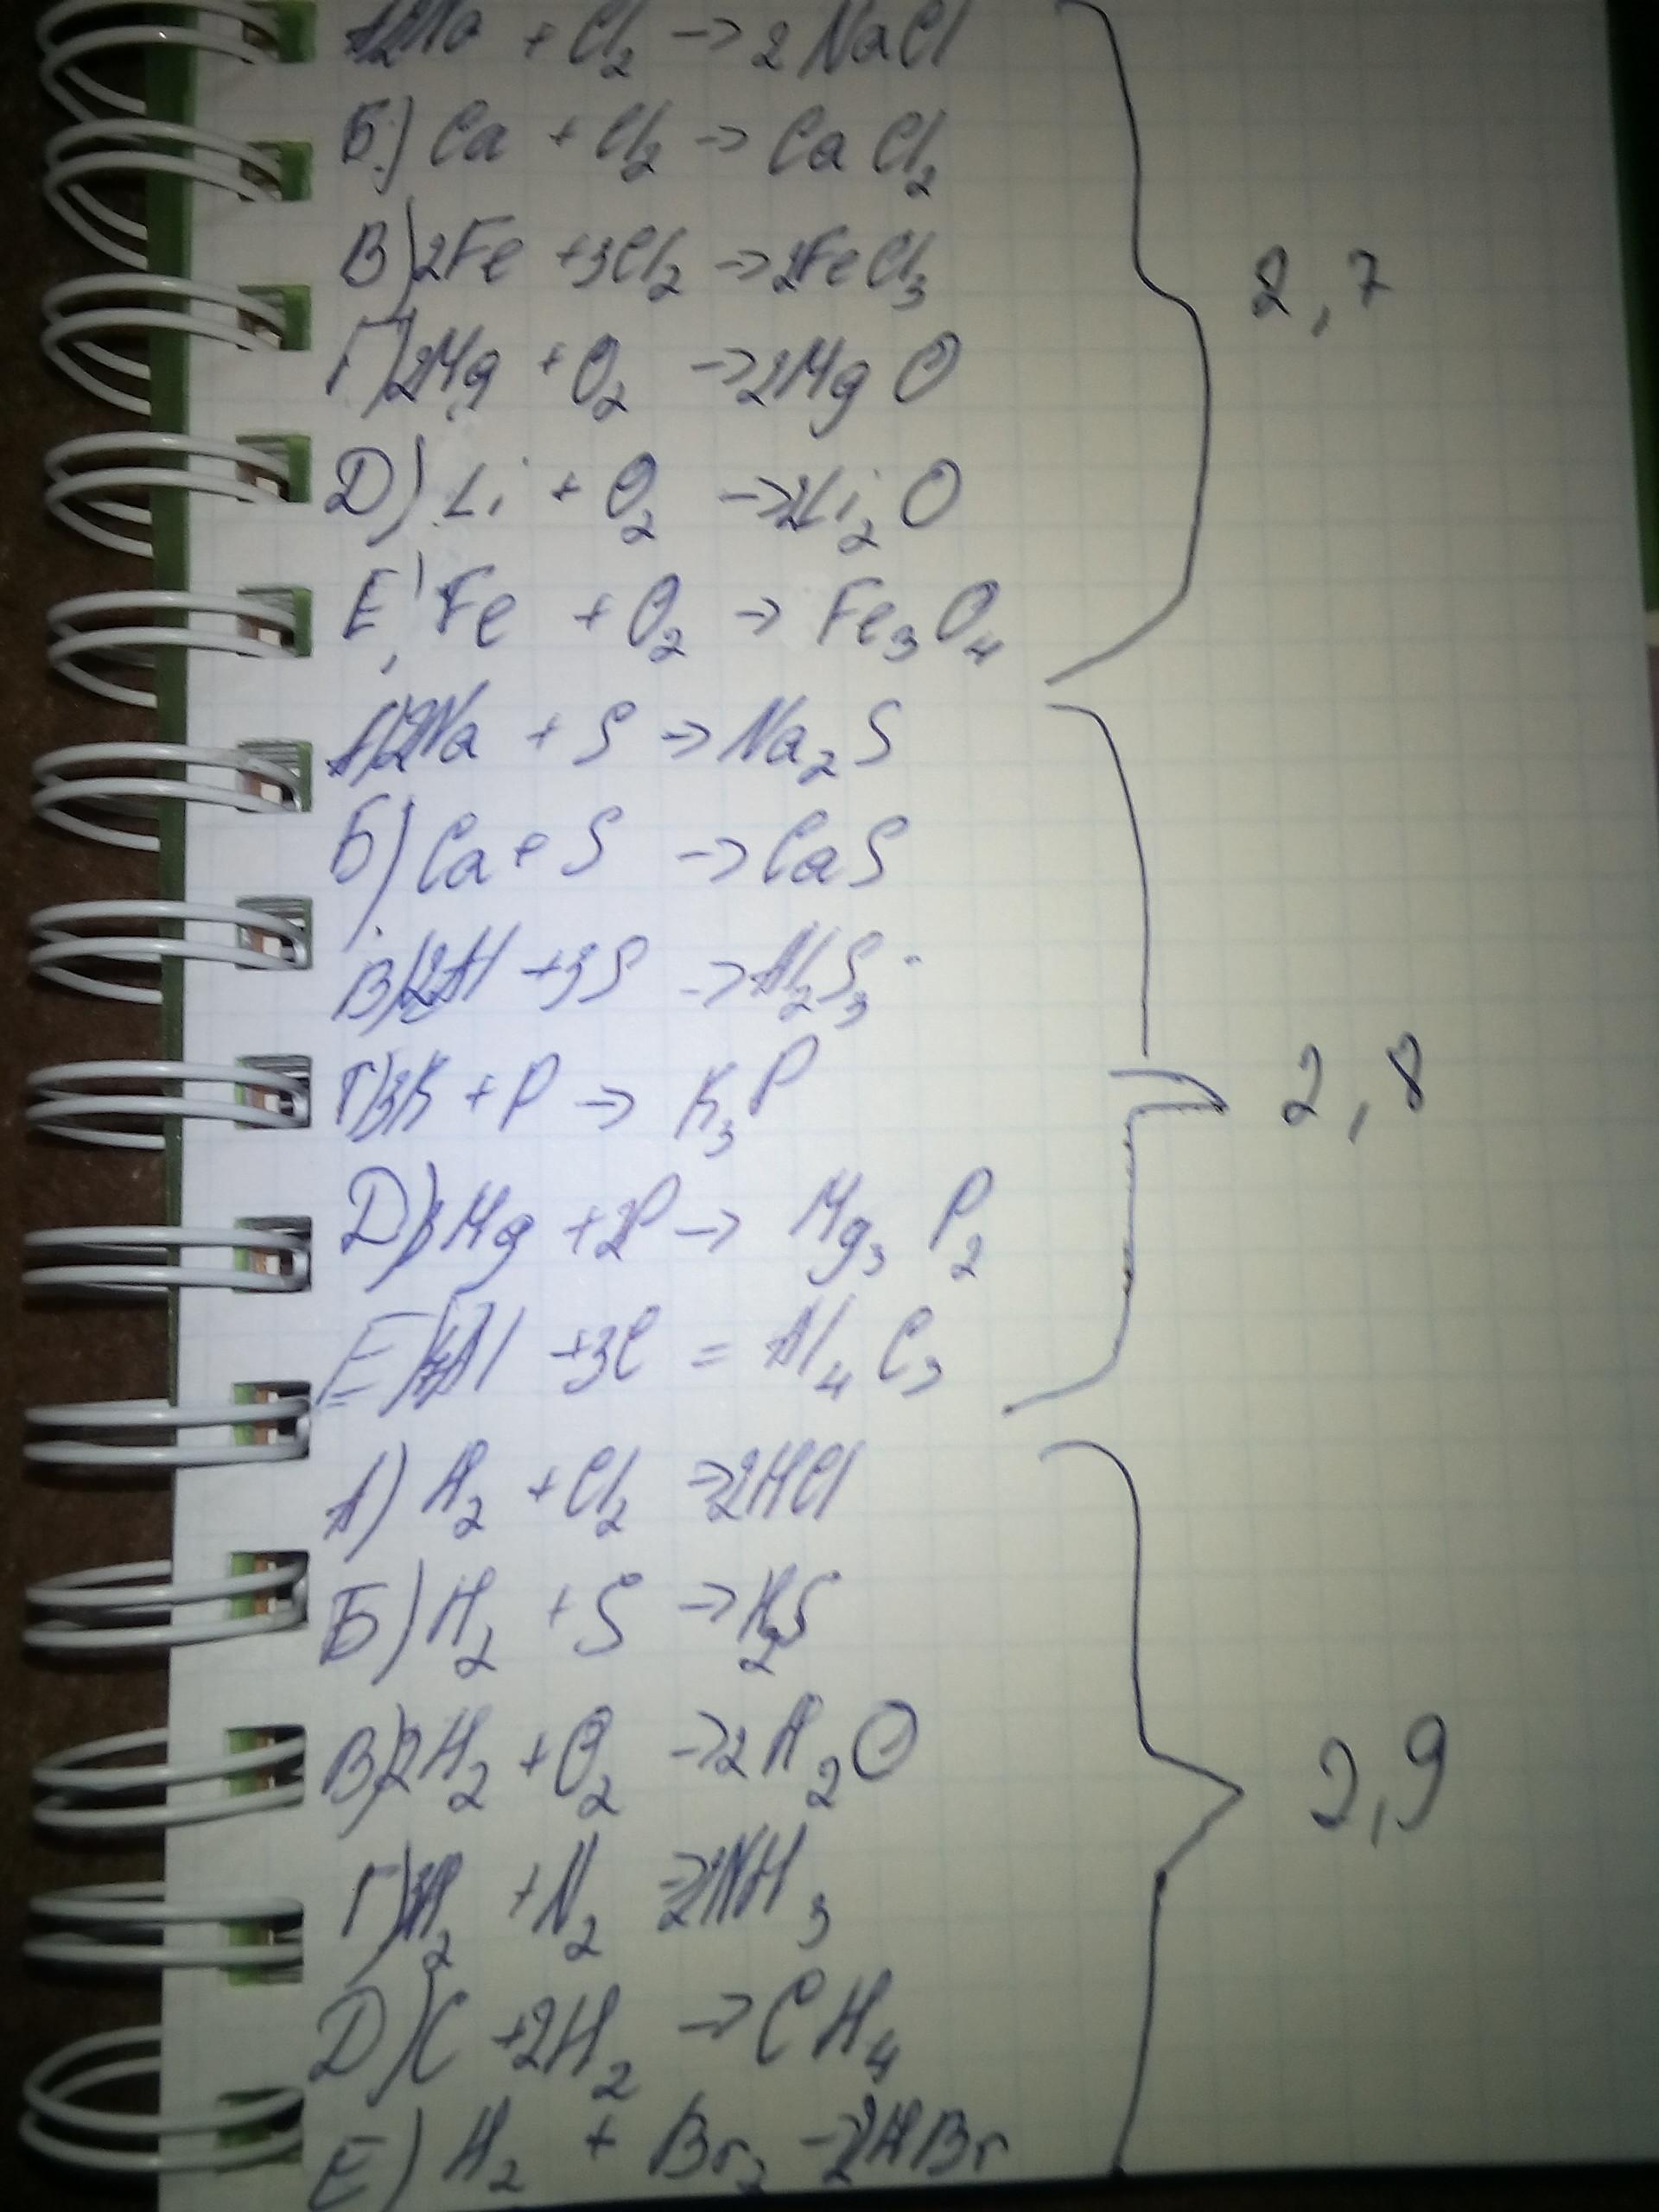 А)2Na + Cl₂ → 2NaCl
Б) Ca + Cl₂ → CaCl₂
В) 2Fe + 3Cl₂ → 2FeCl₃
2,7
Г) 2Mg + O₂ → 2MgO
Д) Li + O₂ → 2Li₂O
Е) Fe + O₂ → Fe₃O₄
А) 2Na + S → Na₂S
Б) Ca + S → CaS
В) 2Al + 3S → Al₂S₃
Г) 3K + P → K₃P
2,8
Д) 3Mg + 2P → Mg₃P₂
Е) 4Al + 3C = Al₄C₃
А) H₂ + Cl₂ → 2HCl
Б) H₂ + S → H₂S
В) 2H₂ + O₂ → 2H₂O
2,9
Г) 3H₂ + N₂ → 2NH₃
Д) C + 2H₂ → CH₄
Е) H₂ + Br₂ → 2HBr